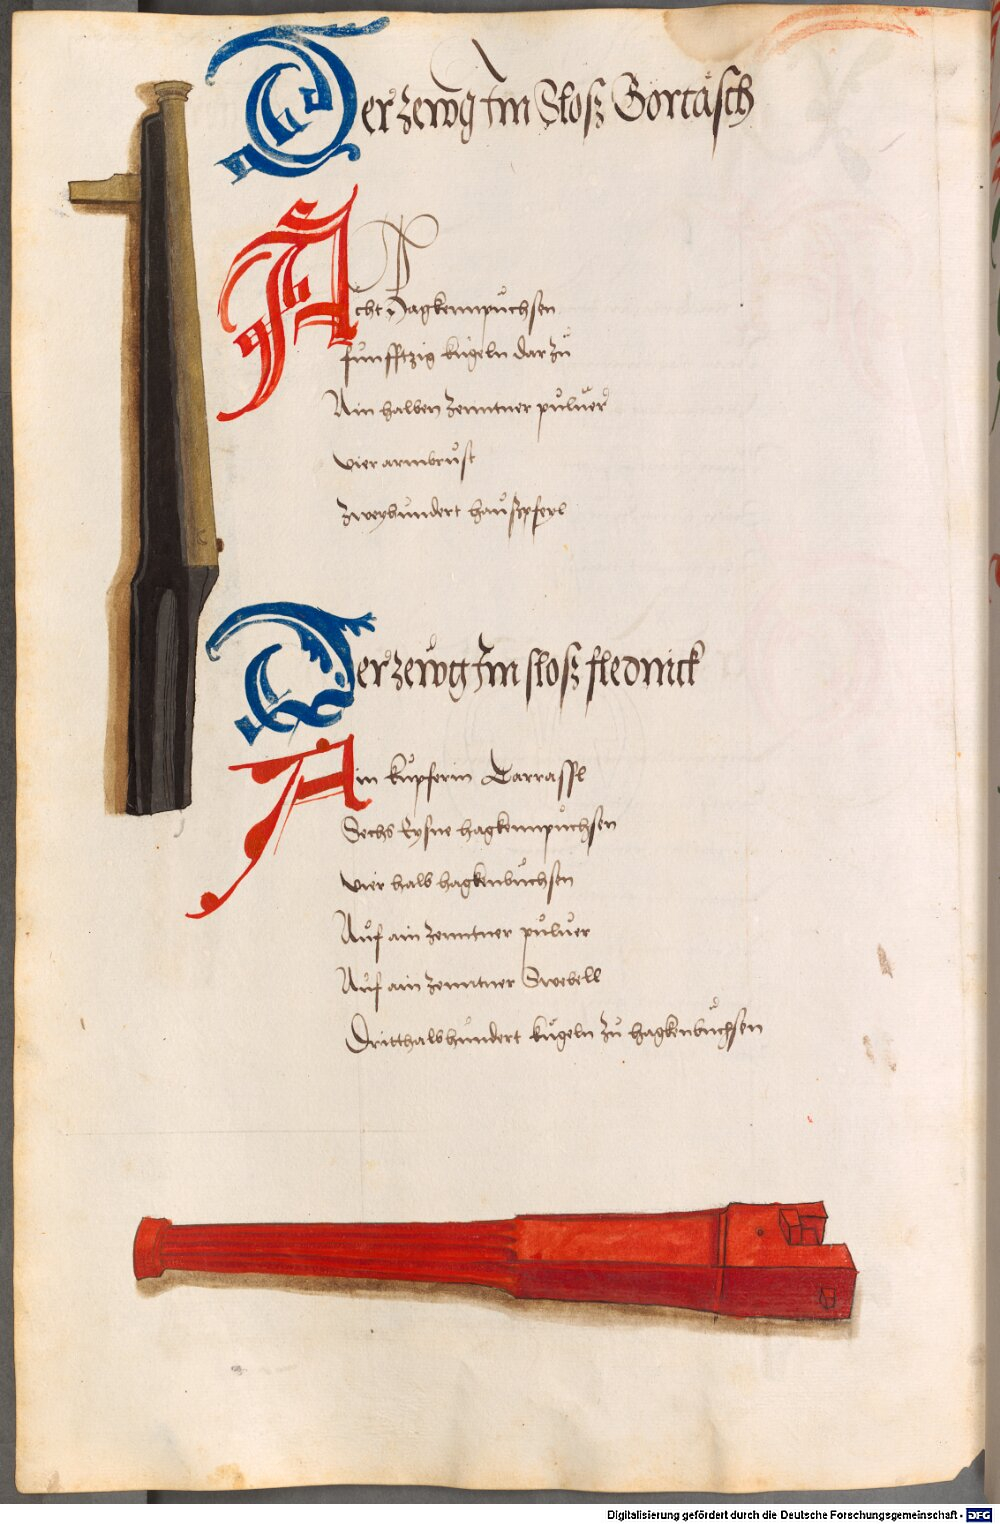 Der zewg Im Sloß Gortäsch
Acht Hagkennpůchsen
fůnfftzig kůgeln dar zů
Ain halben Zenntner půluer
vier armbrůst
Zweyhundert haůßpfeyl
Der zewg Im sloß flednick
Ain kůpferin Tarrassl
Sechs Eysne hagkennpůchsen
vier halb hagkenbůchsen
Aůf ain Zenntner půluer
Aůf ain Zenntner Swebell
Dritthalbhůndert kůgeln zů hagkenbůchsen
Digitalisierung gefördert durch die Deutsche Forschungsgemeinschaft - DFG